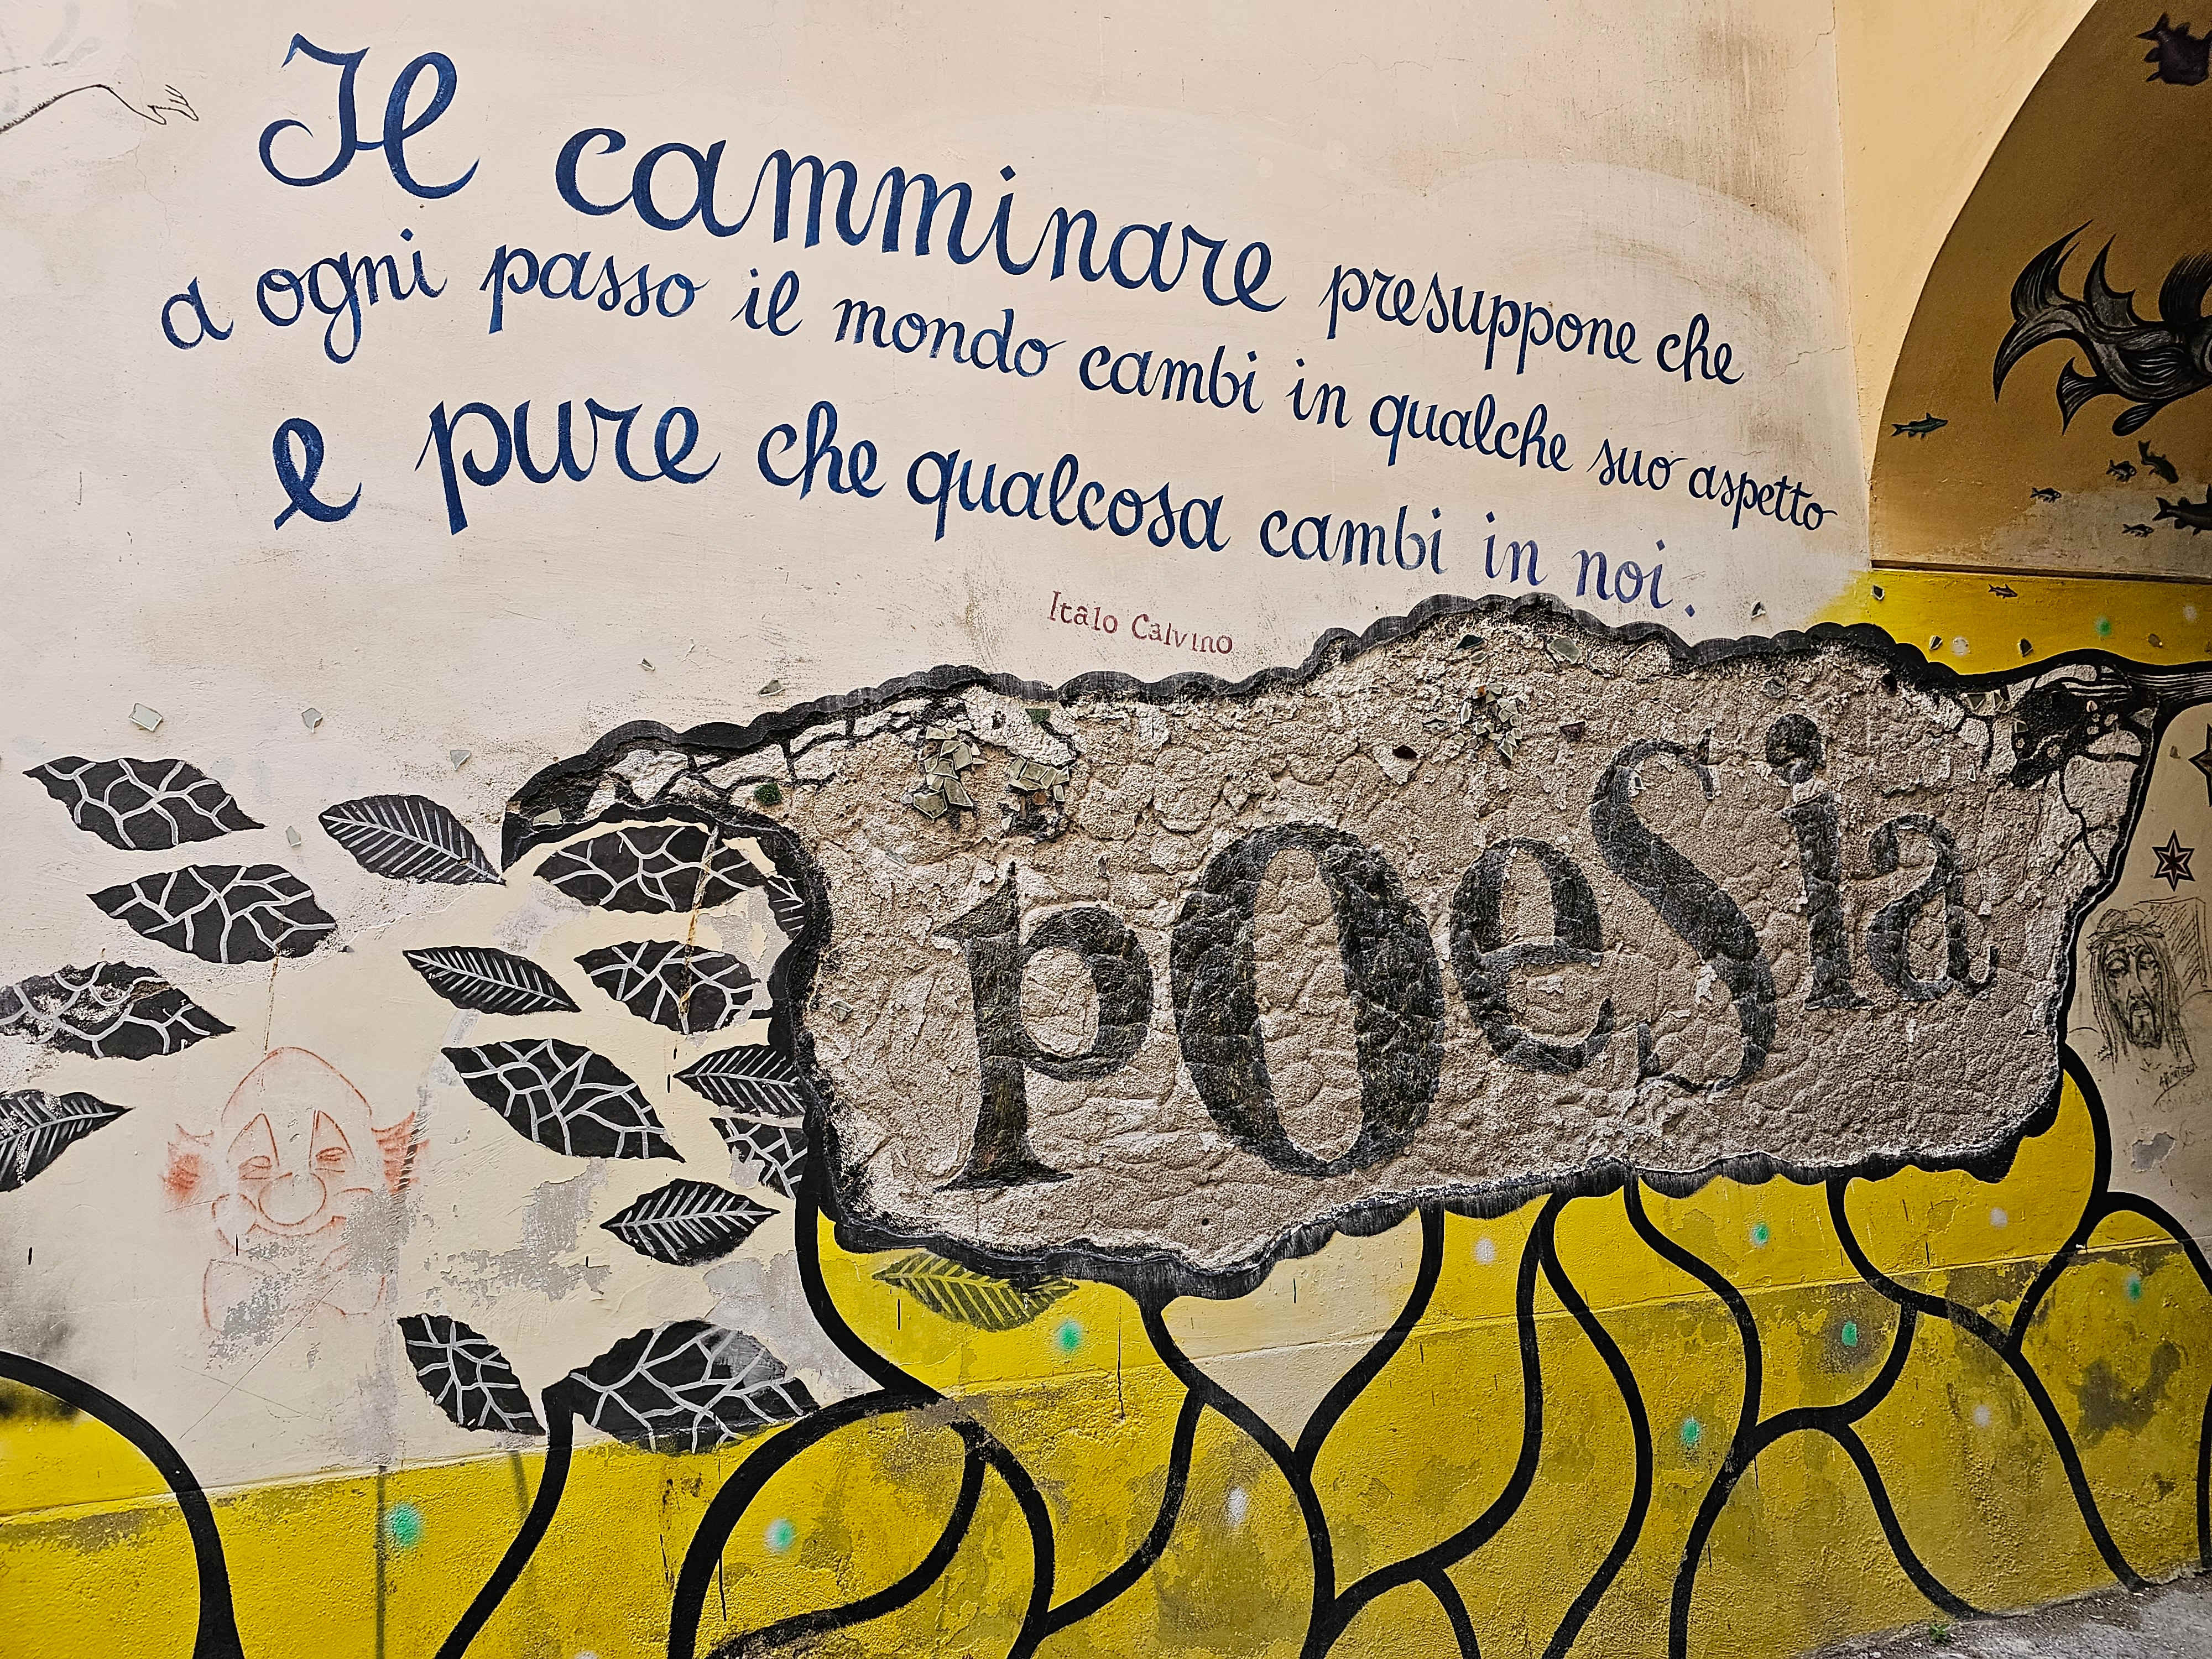 Il camminare presuppone che
a ogni passo il mondo cambi in qualche suo aspetto
e pure che qualcosa cambi in noi.
Italo Calvino
poesia